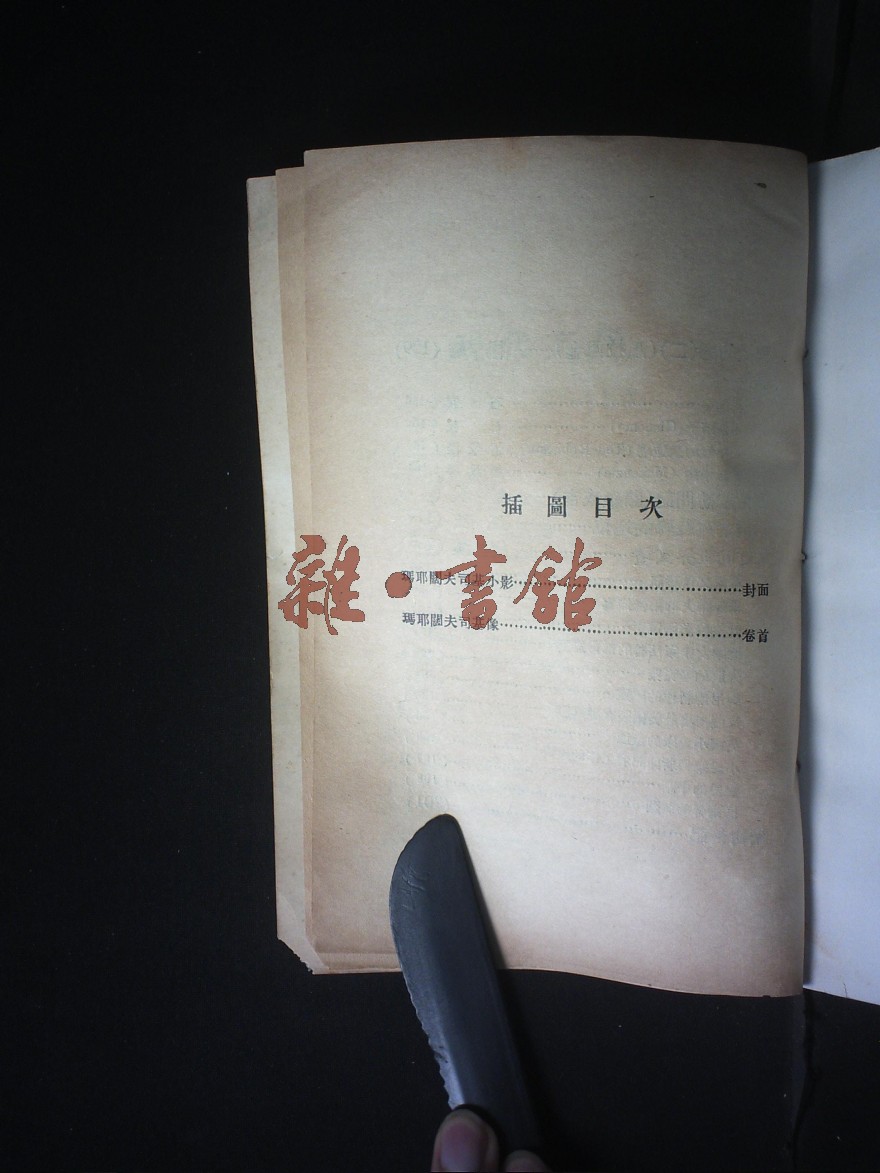 插圖目次
瑪耶闊夫司基小影……封面
瑪耶闊夫司基像……卷首
雜·書館